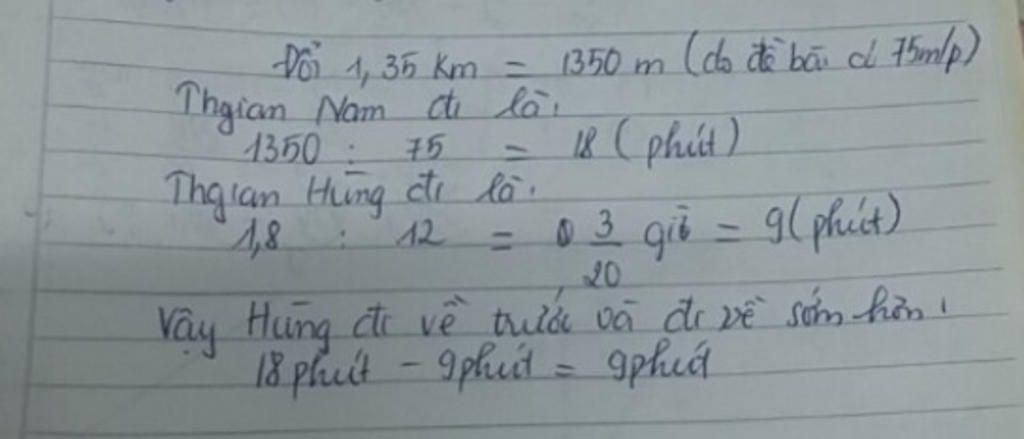 Đổi 1,35 Km = 1350 m (do đề bài có 75m/p)
Thgian Nam đi là:
1350 : 75 = 18 (phút)
Thgian Hùng đi là:
1,8 : 12 = 3/20 giờ = 9 (phút)
Vậy Hùng đi về trước và đi về sớm hơn:
18 phút - 9 phút = 9 phút